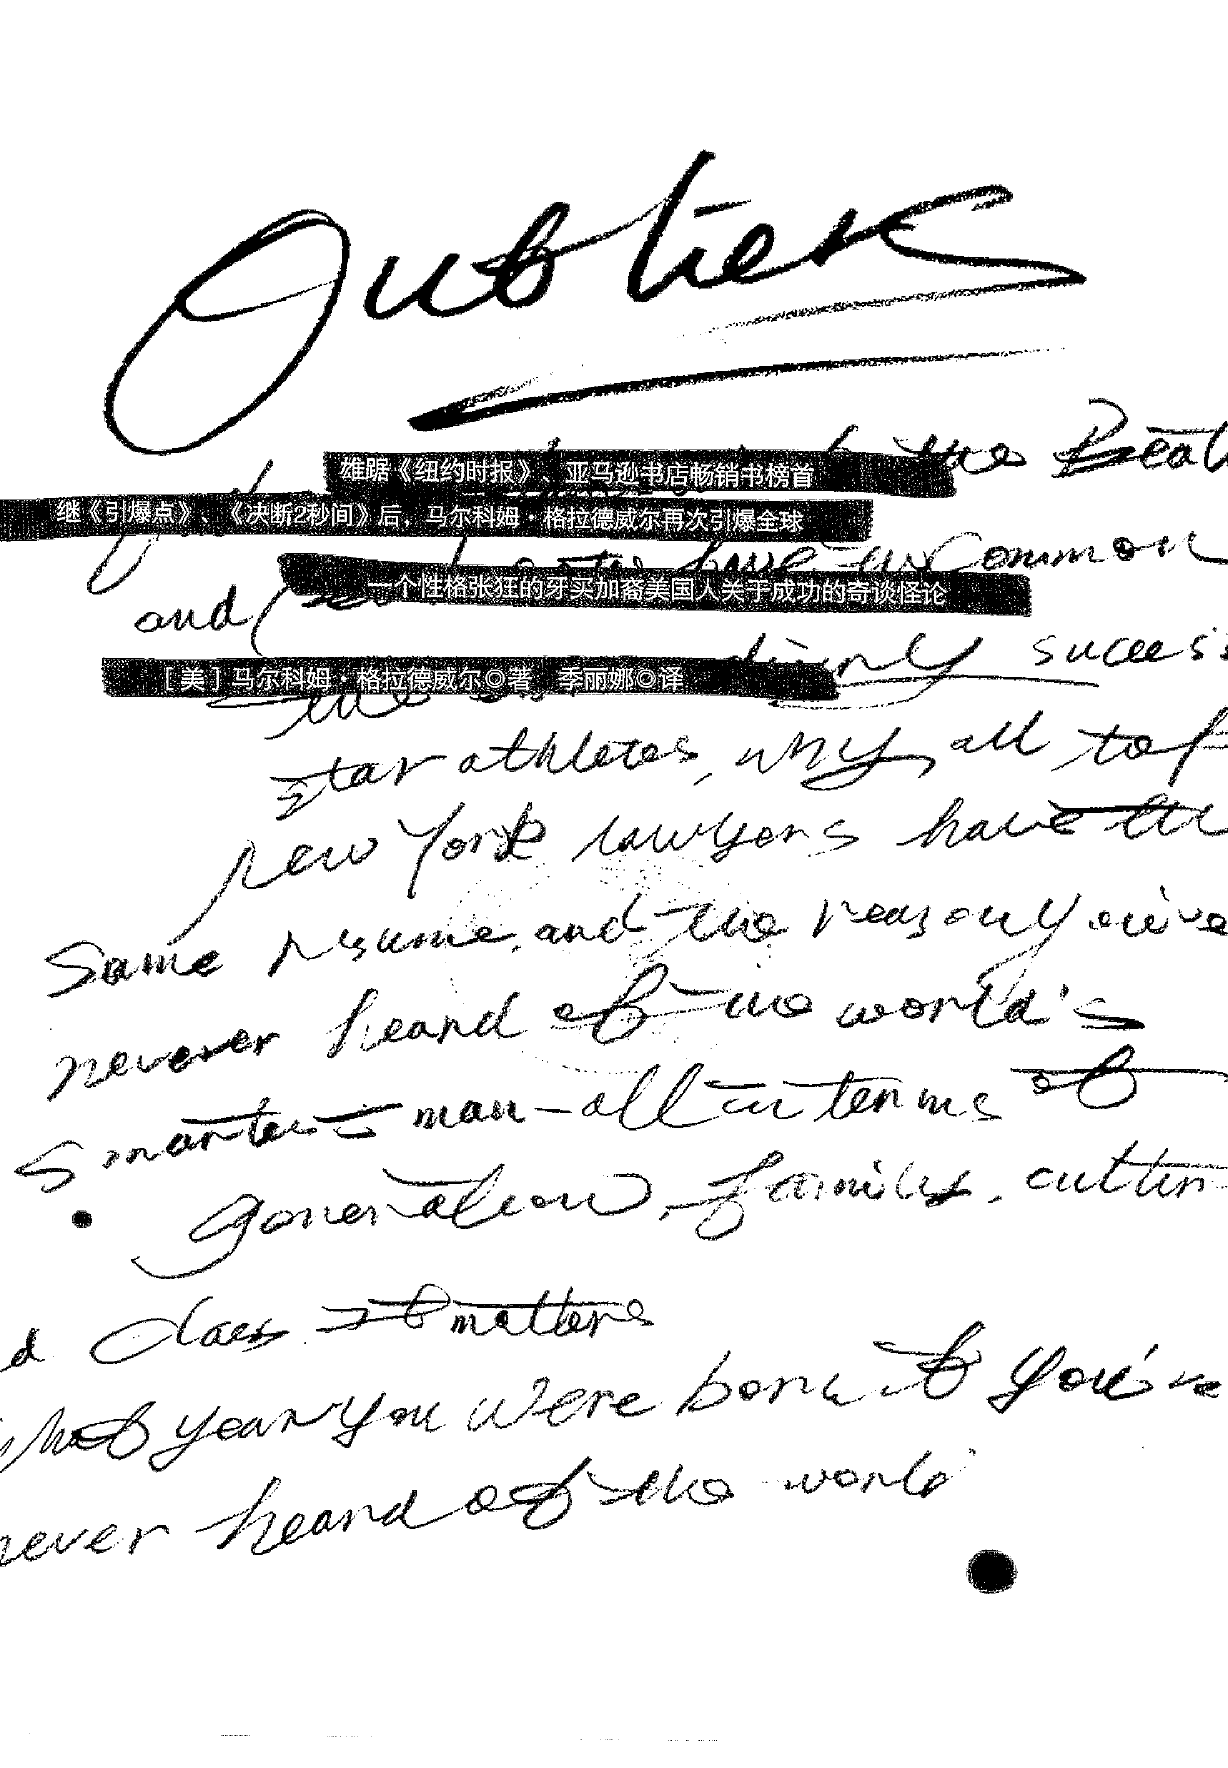 Outliers
the Beatl
雄踞《纽约时报》、亚马逊书店畅销书榜首
继《引爆点》、《决断2秒间》后，马尔科姆·格拉德威尔再次引爆全球
have in common
一个性格张狂的牙买加裔美国人关于成功的奇谈怪论
and
success
［美］马尔科姆·格拉德威尔◎著 季丽娜◎译
star athletes, why all top
New York lawyers have the
same resume, and the reason you've
never heard of the world's
smartest man - all in terms of
generation, family, cultur
d class matters
what year you were born
you've
never heard of the world